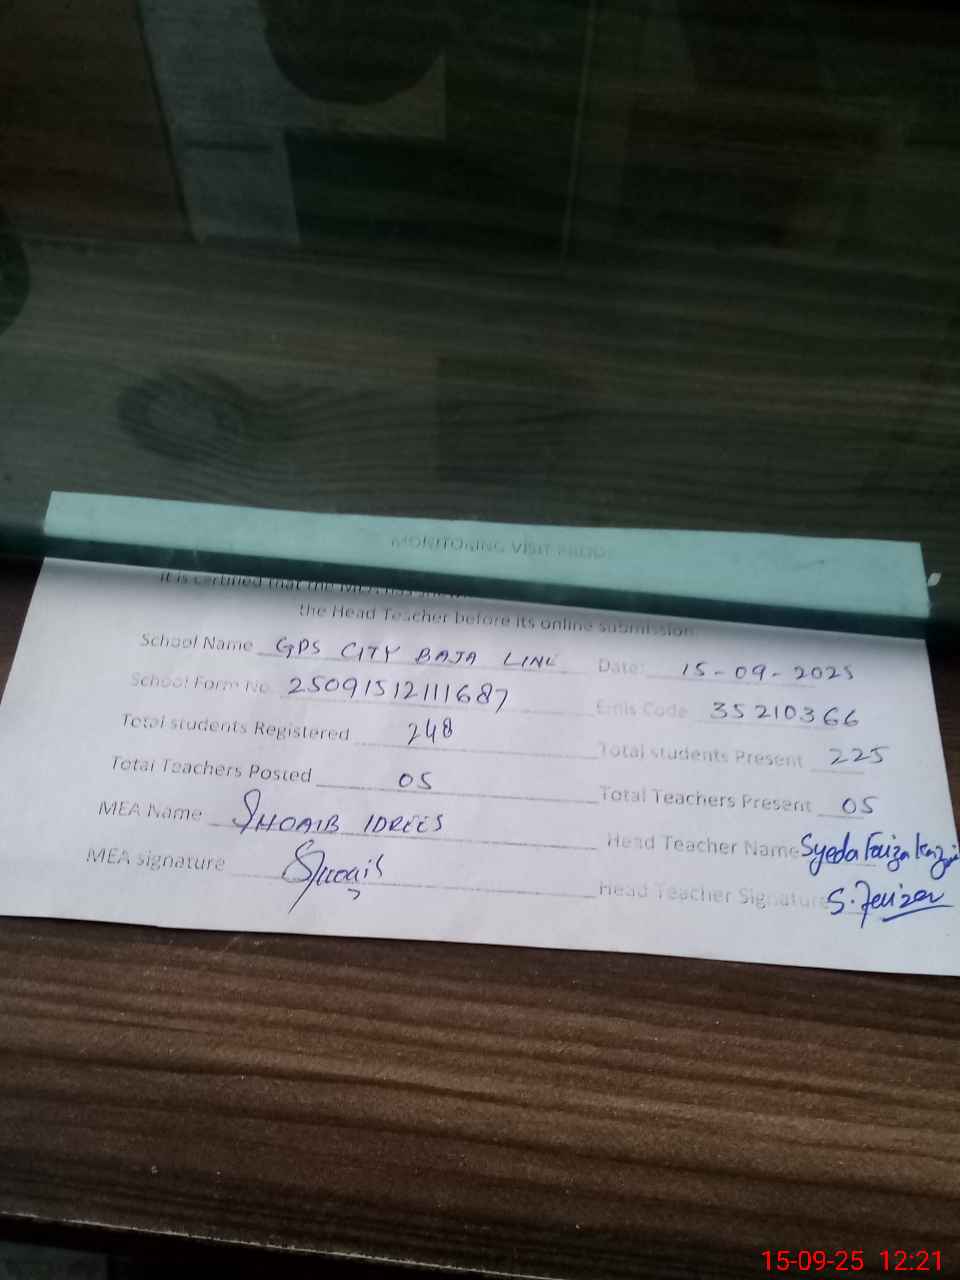 MONITORING VISIT PROOF
It is certified that the MEA has
the Head Teacher before its online submission
School Name GPS CITY BAJA LINE Date: 15-09-2025
School Form No. 25091512111687 Emis Code 35210366
Total students Registered 248 Total students Present 225
Total Teachers Posted 05 Total Teachers Present 05
MEA Name SHOAIB IDREES Head Teacher Name Syeda Faiza
MEA signature Shoaib Head Teacher Signature S. Faiza
15-09-25 12:21